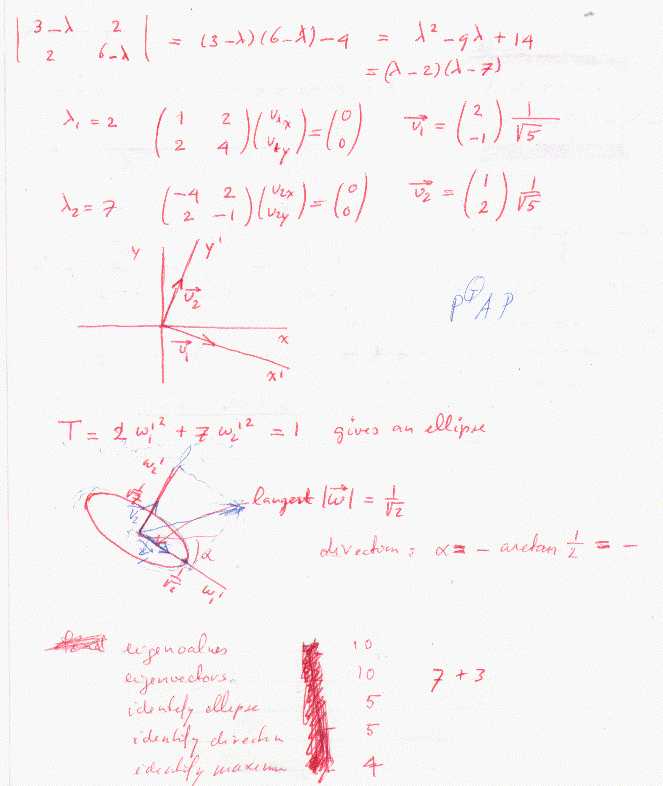 | 3-λ 2 | = (3-λ)(6-λ)-4 = λ² - 9λ + 14
| 2 6-λ | = (λ-2)(λ-7)
λ₁ = 2 (1 2; 2 4)(v₁x; v₁y) = (0; 0) v₁→ = (2; -1) 1/√5
λ₂ = 7 (-4 2; 2 -1)(v₂x; v₂y) = (0; 0) v₂→ = (1; 2) 1/√5
y y'
v₂→
PᵀAP
v₁→ x
x'
T = 2 ω₁'² + 7 ω₂'² = 1 gives an ellipse
ω₂'
longest |ω→| = 1/√2
α
direction: α = - arctan 1/2 = -
1/√2
ω₁'
eigenvalues 10
eigenvectors. 10 7 + 3
identify ellipse 5
identify direction 5
identify maximum 4